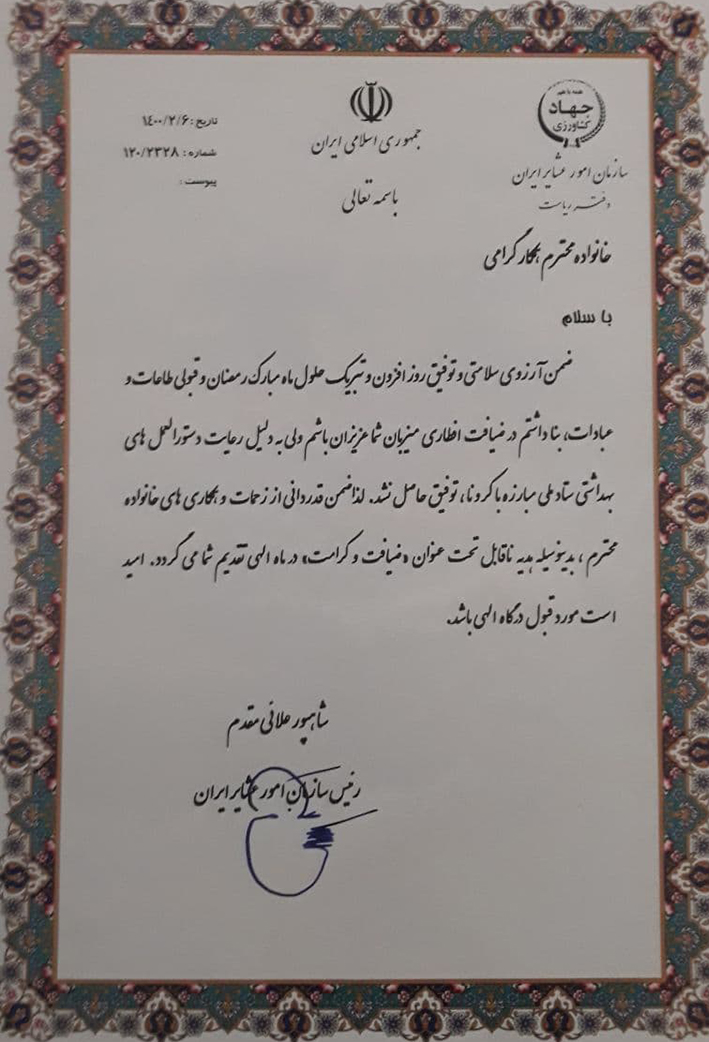 همه با هم
جهاد
کشاورزی
سازمان امور عشایر ایران
دفتر ریاست
جمهوری اسلامی ایران
باسمه تعالی
تاریخ: ۱٤۰۰/۲/۶
شماره: ۱۲۰/۲۳۲۸
پیوست:
خانواده محترم همکار گرامی
با سلام
ضمن آرزوی سلامتی و توفیق روز افزون و تبریک حلول ماه مبارک رمضان و قبولی طاعات و
عبادات، بنا داشتم در ضیافت افطاری میزبان شما عزیزان باشم ولی به دلیل رعایت دستورالعمل های
بهداشتی ستاد ملی مبارزه با کرونا، توفیق حاصل نشد. لذا ضمن قدردانی از زحمات و همکاری های خانواده
محترم، بدینوسیله هدیه ناقابل تحت عنوان «ضیافت و کرامت» در ماه الهی تقدیم شما می گردد. امید
است مورد قبول درگاه الهی باشد.
شاهپور علائی مقدم
رئیس سازمان امور عشایر ایران